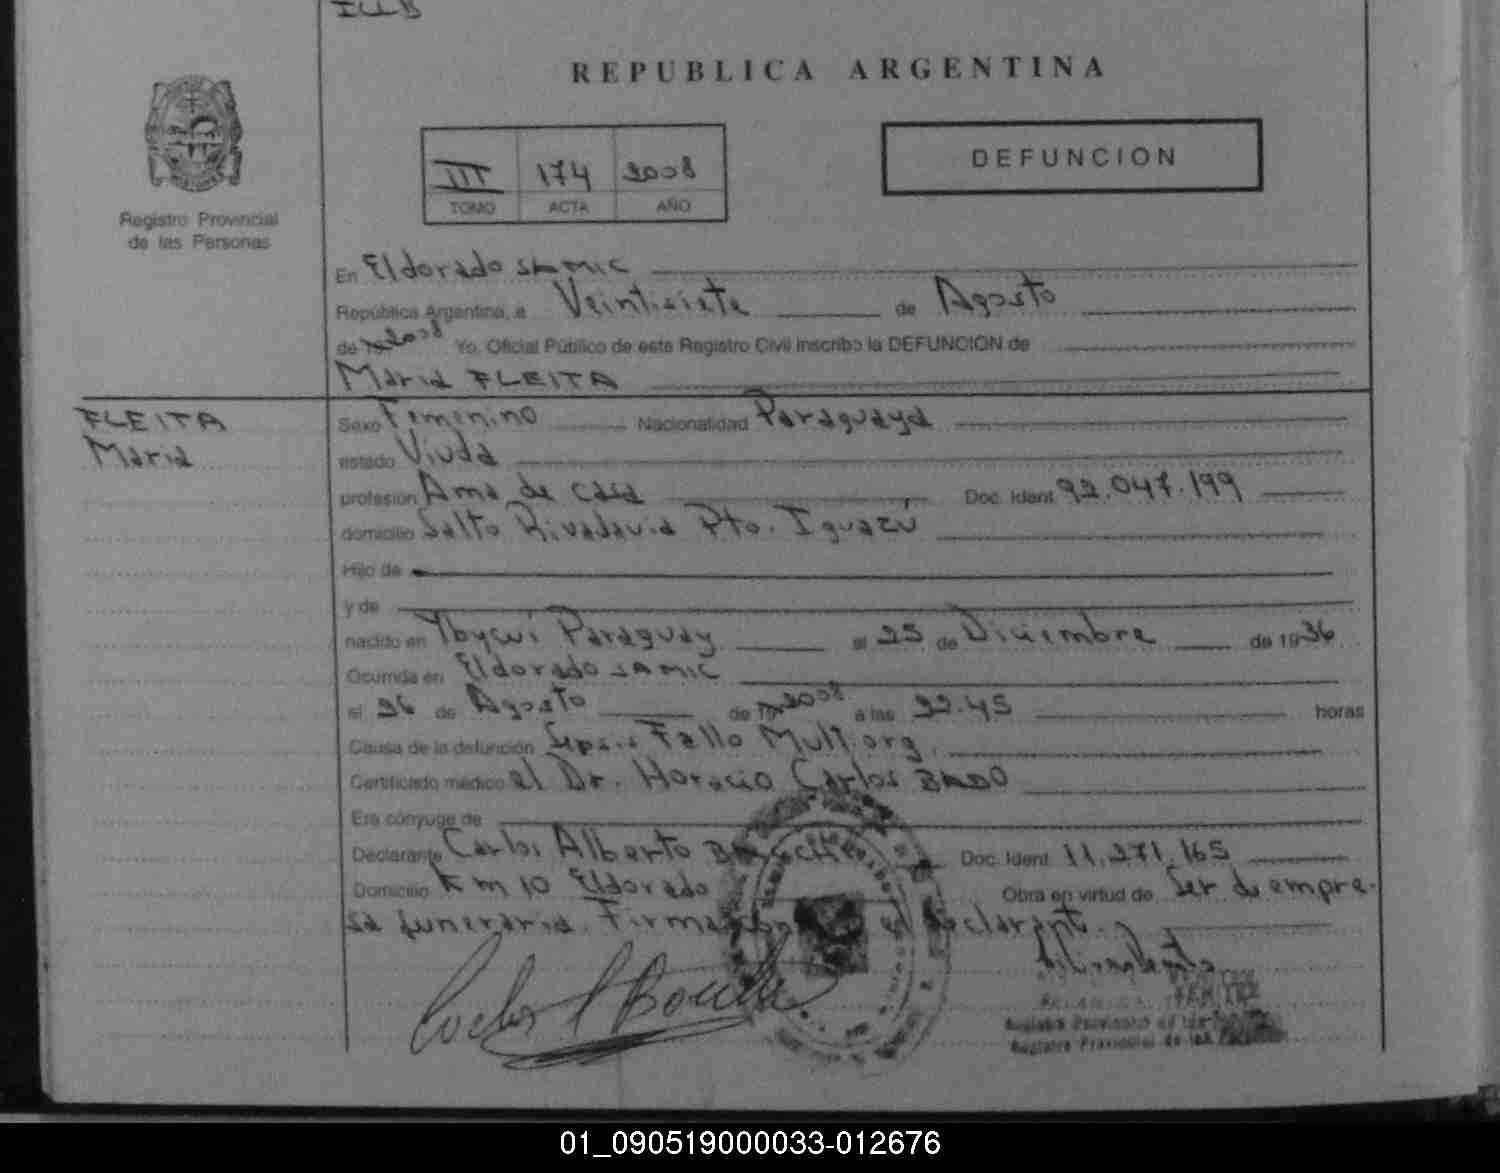 REPUBLICA ARGENTINA
III 174 2008
TOMO ACTA AÑO
DEFUNCION
Registro Provincial
de las Personas
En Eldorado SAMIC
República Argentina, a Veintisiete de Agosto
de 2008 Yo, Oficial Público de este Registro Civil inscribo la DEFUNCION de
Maria FLEITA
FLEITA
Maria
Sexo Femenino Nacionalidad Paraguaya
estado Viuda
profesión Ama de casa Doc. Ident 92.047.199
domicilio Salto Rivadavia Pto. Iguazú
Hijo de
y de
nacido en Ybycui Paraguay el 25 de Diciembre de 1936
Ocurrida en Eldorado SAMIC
el 26 de Agosto de 19 2008 a las 22.45 horas
Causa de la defunción Sepsis Fallo Mult. org.
Certificado médico el Dr. Horacio Carlos
Era cónyuge de
Declarante Carlos Alberto Doc. Ident 11.271.165
Domicilio Km 10 Eldorado Obra en virtud de Ser de empre-
sa funeraria. el declarante.
Registro Provincial de las
01_090519000033-012676